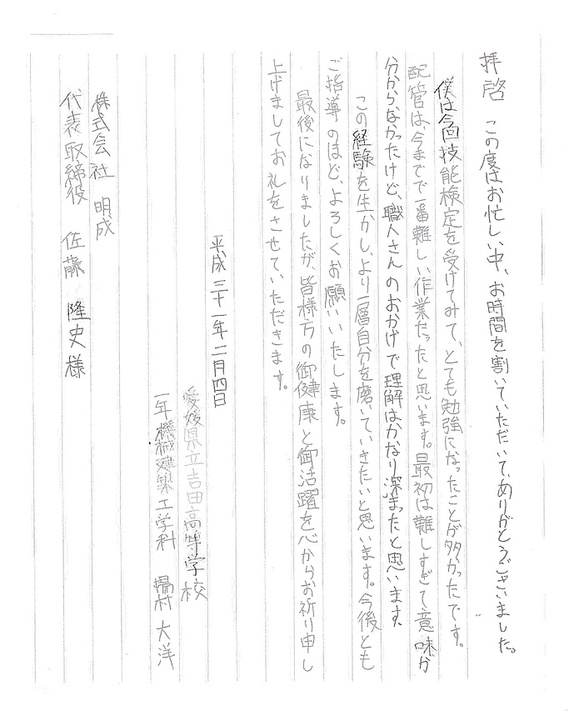 拝啓 この度はお忙しい中、お時間を割いていただいて、ありがとうございました。
僕は今回技能検定を受けてみて、とても勉強になったことが多かったです。
配管は、今までで一番難しい作業だったと思います。最初は難しすぎて意味が
分からなかったけど、職人さんのおかげで理解はかなり深まったと思います。
この経験を生かし、より一層自分を磨いていきたいと思います。今後とも
ご指導のほど、よろしくお願いいたします。
最後になりましたが、皆様方の御健康と御活躍を心からお祈り申し
上げましてお礼をさせていただきます。
平成三十一年二月四日
愛媛県立吉田高等学校
一年 機械建築工学科 村 大洋
株式会社 明成
代表取締役 佐藤 隆史 様